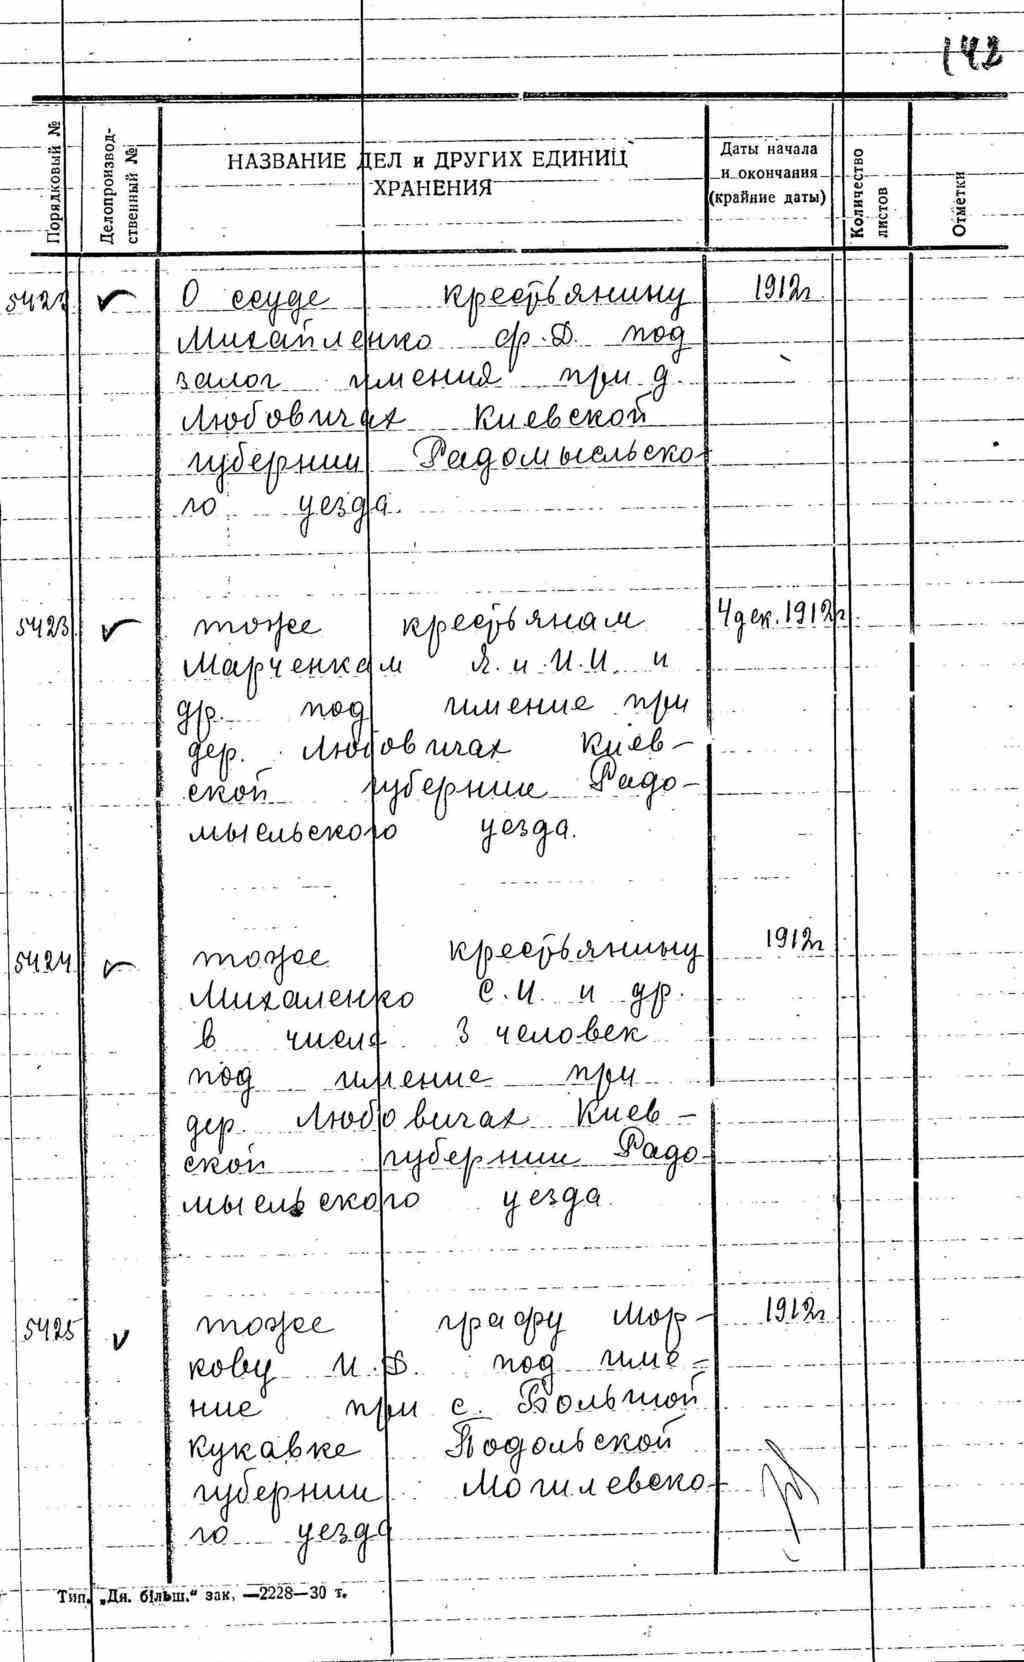 142
Порядковый №
Делопроизвод-
ственный №
НАЗВАНИЕ ДЕЛ и ДРУГИХ ЕДИНИЦ
ХРАНЕНИЯ
Даты начала
и окончания
(крайние даты)
Количество
листов
Отметки
5422 О ссуде крестьянину 1912г.
Михайленко Ф.Д. под
залог имения при д.
Любовичах Киевской
губернии Радомысельско-
го уезда.
5423 тоже крестьянам 4 дек. 1912г.
Марченкам Я. и И.И. и
др. под имение при
дер. Любовичах Киев-
ской губернии Радо-
мысельского уезда.
5424 тоже крестьянину 1912г
Михаленко С.И. и др.
в числе 3 человек
под имение при
дер. Любовичах Киев-
ской губернии Радо-
мысельского уезда.
5425 тоже графу Мор- 1912г
кову И.В. под име-
ние при с. Большой
Кукавке Подольской
губернии Могилевско-
го уезда
Тип. „Дн. більш.“ зак. —2228—30 т.